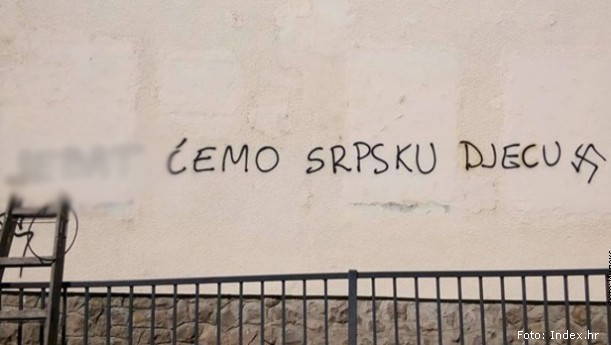 ĆEMO SRPSKU DJECU
Foto: Index.hr